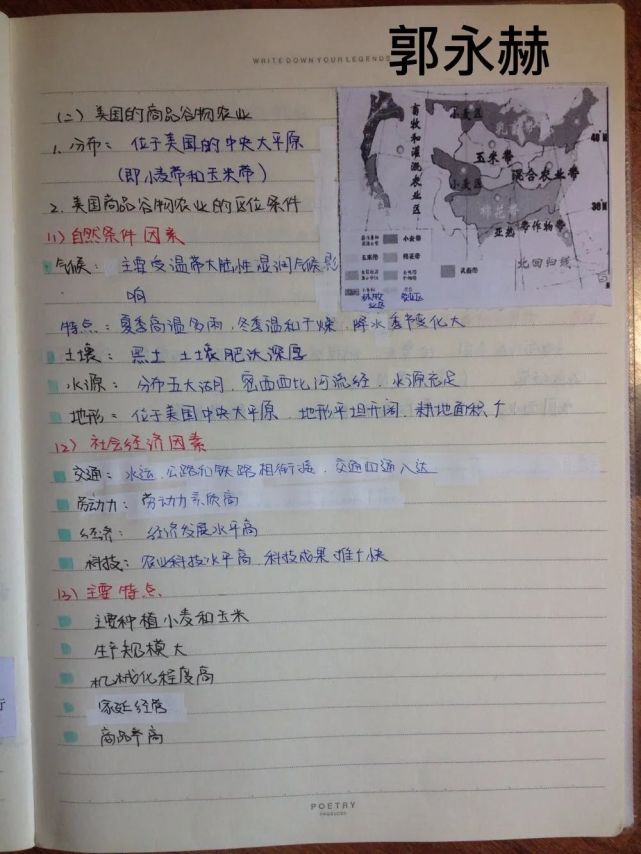 WRITE DOWN YOUR LEGENDS
郭永赫
(二) 美国的商品谷物农业
1. 分布: 位于美国的中央大平原
(即小麦带和玉米带)
2. 美国商品谷物农业的区位条件
(1) 自然条件因素
气候: 主要受温带大陆性湿润气候影
响
特点: 夏季高温多雨,冬季温和干燥,降水季节变化大
土壤: 黑土 土壤肥沃深厚
水源: 分布五大湖,密西西比河流经,水源充足
地形: 位于美国中央大平原,地形平坦开阔,耕地面积↑
(2) 社会经济因素
交通: 水运、公路和铁路相衔接,交通四通八达
劳动力: 劳动力素质高
经济: 经济发展水平高
科技: 农业科技水平高,科技成果推广快
(3) 主要特点
主要种植小麦和玉米
生产规模大
机械化程度高
家庭经营
商品率高
畜牧和灌溉农业区
小麦区
乳畜带
玉米带
混合农业带
小麦区
棉花带
亚热带作物带
北回归线
40
30
小麦带
玉米带
棉花带
乳畜带
POETRY